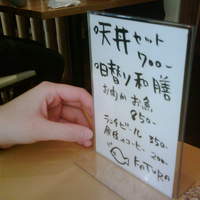 天丼セット
700-
日替り和膳
お肉かお魚
850-
ランチビール 350-
食後のコーヒー 200-